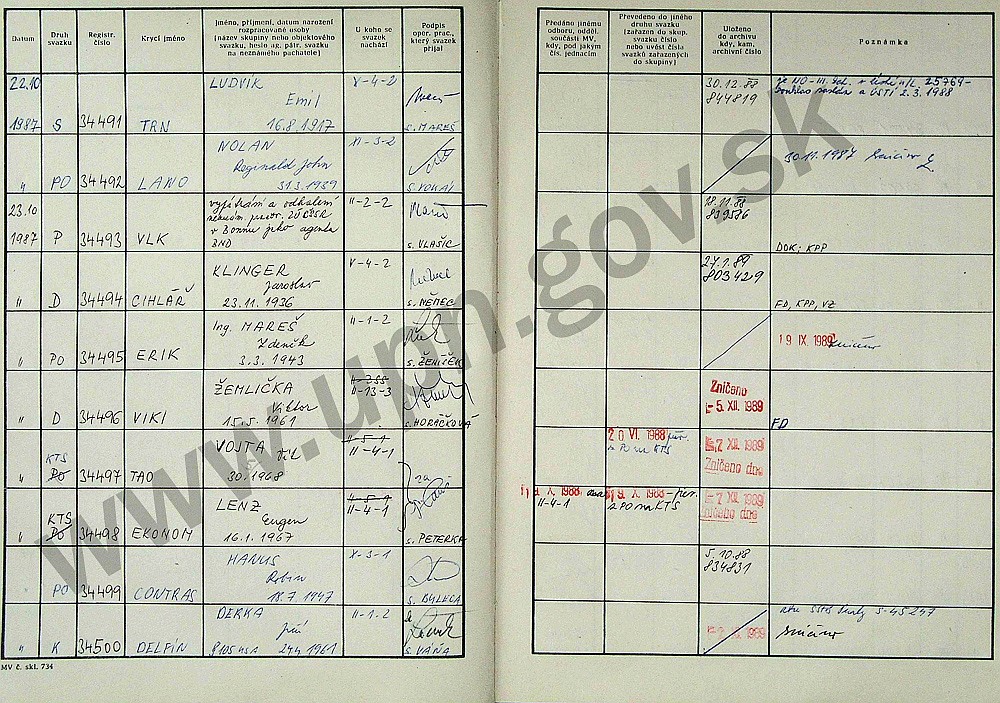 Datum
Druh svazku
Registr. číslo
Krycí jméno
Jméno, příjmení, datum narození
rozpracované osoby
(název skupiny nebo objektového
svazku, heslo ag. pátr. svazku
na neznámého pachatele)
U koho se
svazek
nachází
Podpis
oper. prac.,
který svazek
přijal
Předáno jinému
odboru, odděl.
součásti MV,
kdy, pod jakým
čís. jednacím
Převedeno do jiného
druhu svazku
(zařazen do skup.
svazku číslo
nebo uvést čísla
svazků zařazených
do skupiny)
Uloženo
do archivu
kdy, kam,
archivní číslo
Poznámka
22.10 LUDVÍK V-4-2
Emil
1987 S 34491 TRN 16.8.1917 s. MAREŠ
30.12.88
844819
2.3.1988
NOLAN XI-3-2
Reginald John
" PO 34492 LANO 31.3.1939
30.11.1987
23.10 vypátrání a odhalení II-2-2
v Bonnu jeho agenta
1987 P 34493 VLK BND s. VLAŠIC
18.11.88
839576
DOK; KPP
KLINGER V-4-2
Jaroslav
" D 34494 CIHLÁŘ 23.11.1936 s. NĚMEC
27.1.89
803429
FD, KPP, VZ
Ing. MAREŠ II-1-2
Zdeněk
" PO 34495 ERIK 3.3.1943 s. ŽENÍŠEK
19 IX. 1989
ŽEMLIČKA II-13-3
Viktor
" D 34496 VIKI 15.5.1961 s. HORÁČKOVÁ
Zničeno
-5. XII. 1989
FD
KTS VOJTA II-5-1
II-4-1
" PO 34497 TAO 30. 1968 za
20 VI. 1988
z PO na KTS
-7 XII. 1989
Zničeno dne
KTS LENZ II-5-1
Eugen II-4-1
" PO 34498 EKONOM 16.1.1967 s. PETERKA
X. 1988
II-4-1
19 X. 1988
z PO na KTS
-7 XII. 1989
Zničeno dne
HANUS X-3-1
Robin
PO 34499 CONTRAS 18.7.1947
5.10.88
834831
DERKA II-1-2
Jiří
" K 34500 DELFÍN 1961 s. VÁŇA
1989
S-45247
MV č. skl. 734
www.upn.gov.sk